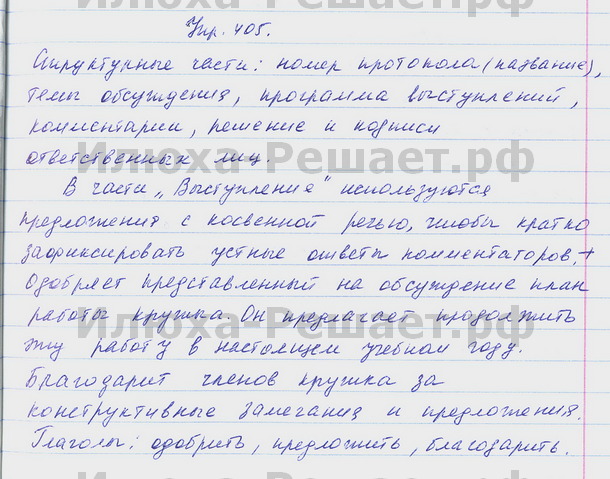 Илюха-Решает.рф
Упр. 405.
Структурные части: номер протокола (название),
темы обсуждения, программа выступлений,
комментарии, решение и подписи
ответственных лиц.
Илюха-Решает.рф
В части „Выступления" используются
предложения с косвенной речью, чтобы кратко
зафиксировать устные ответы комментаторов. +
Одобряет представленный на обсуждение план
работы кружка. Он предлагает продолжить
Илюха-Решает.рф
эту работу в настоящем учебном году.
Благодарит членов кружка за
конструктивные замечания и предложения.
Глаголы: одобрить, предложить, благодарить.
Илюха-Решает.рф